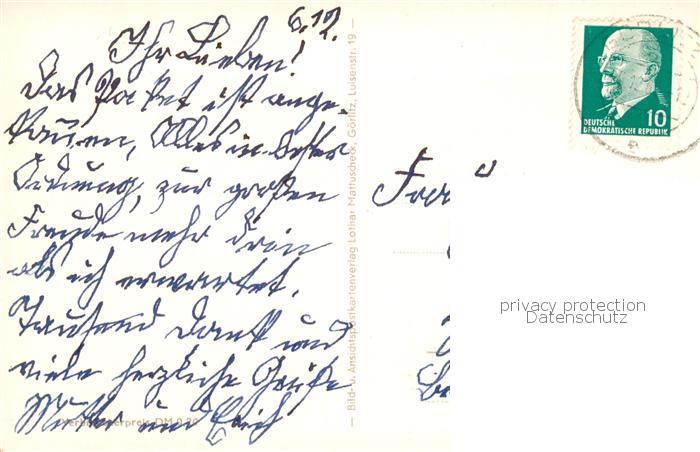 6.12.
Ihr Lieben!
Das Paket ist ange-
kommen, Alles in bester
Ordnung, zur großen
Freude mehr drin
als ich erwartet.
Tausend Dank und
viele herzliche Grüße
Mutter und Erich
Verbraucherpreis DM 0,20
— Bild- u. Ansichtspostkartenverlag Lothar Mattuscheck, Görlitz, Luisenstr. 19 —
DEUTSCHE
DEMOKRATISCHE REPUBLIK
10
privacy protection
Datenschutz